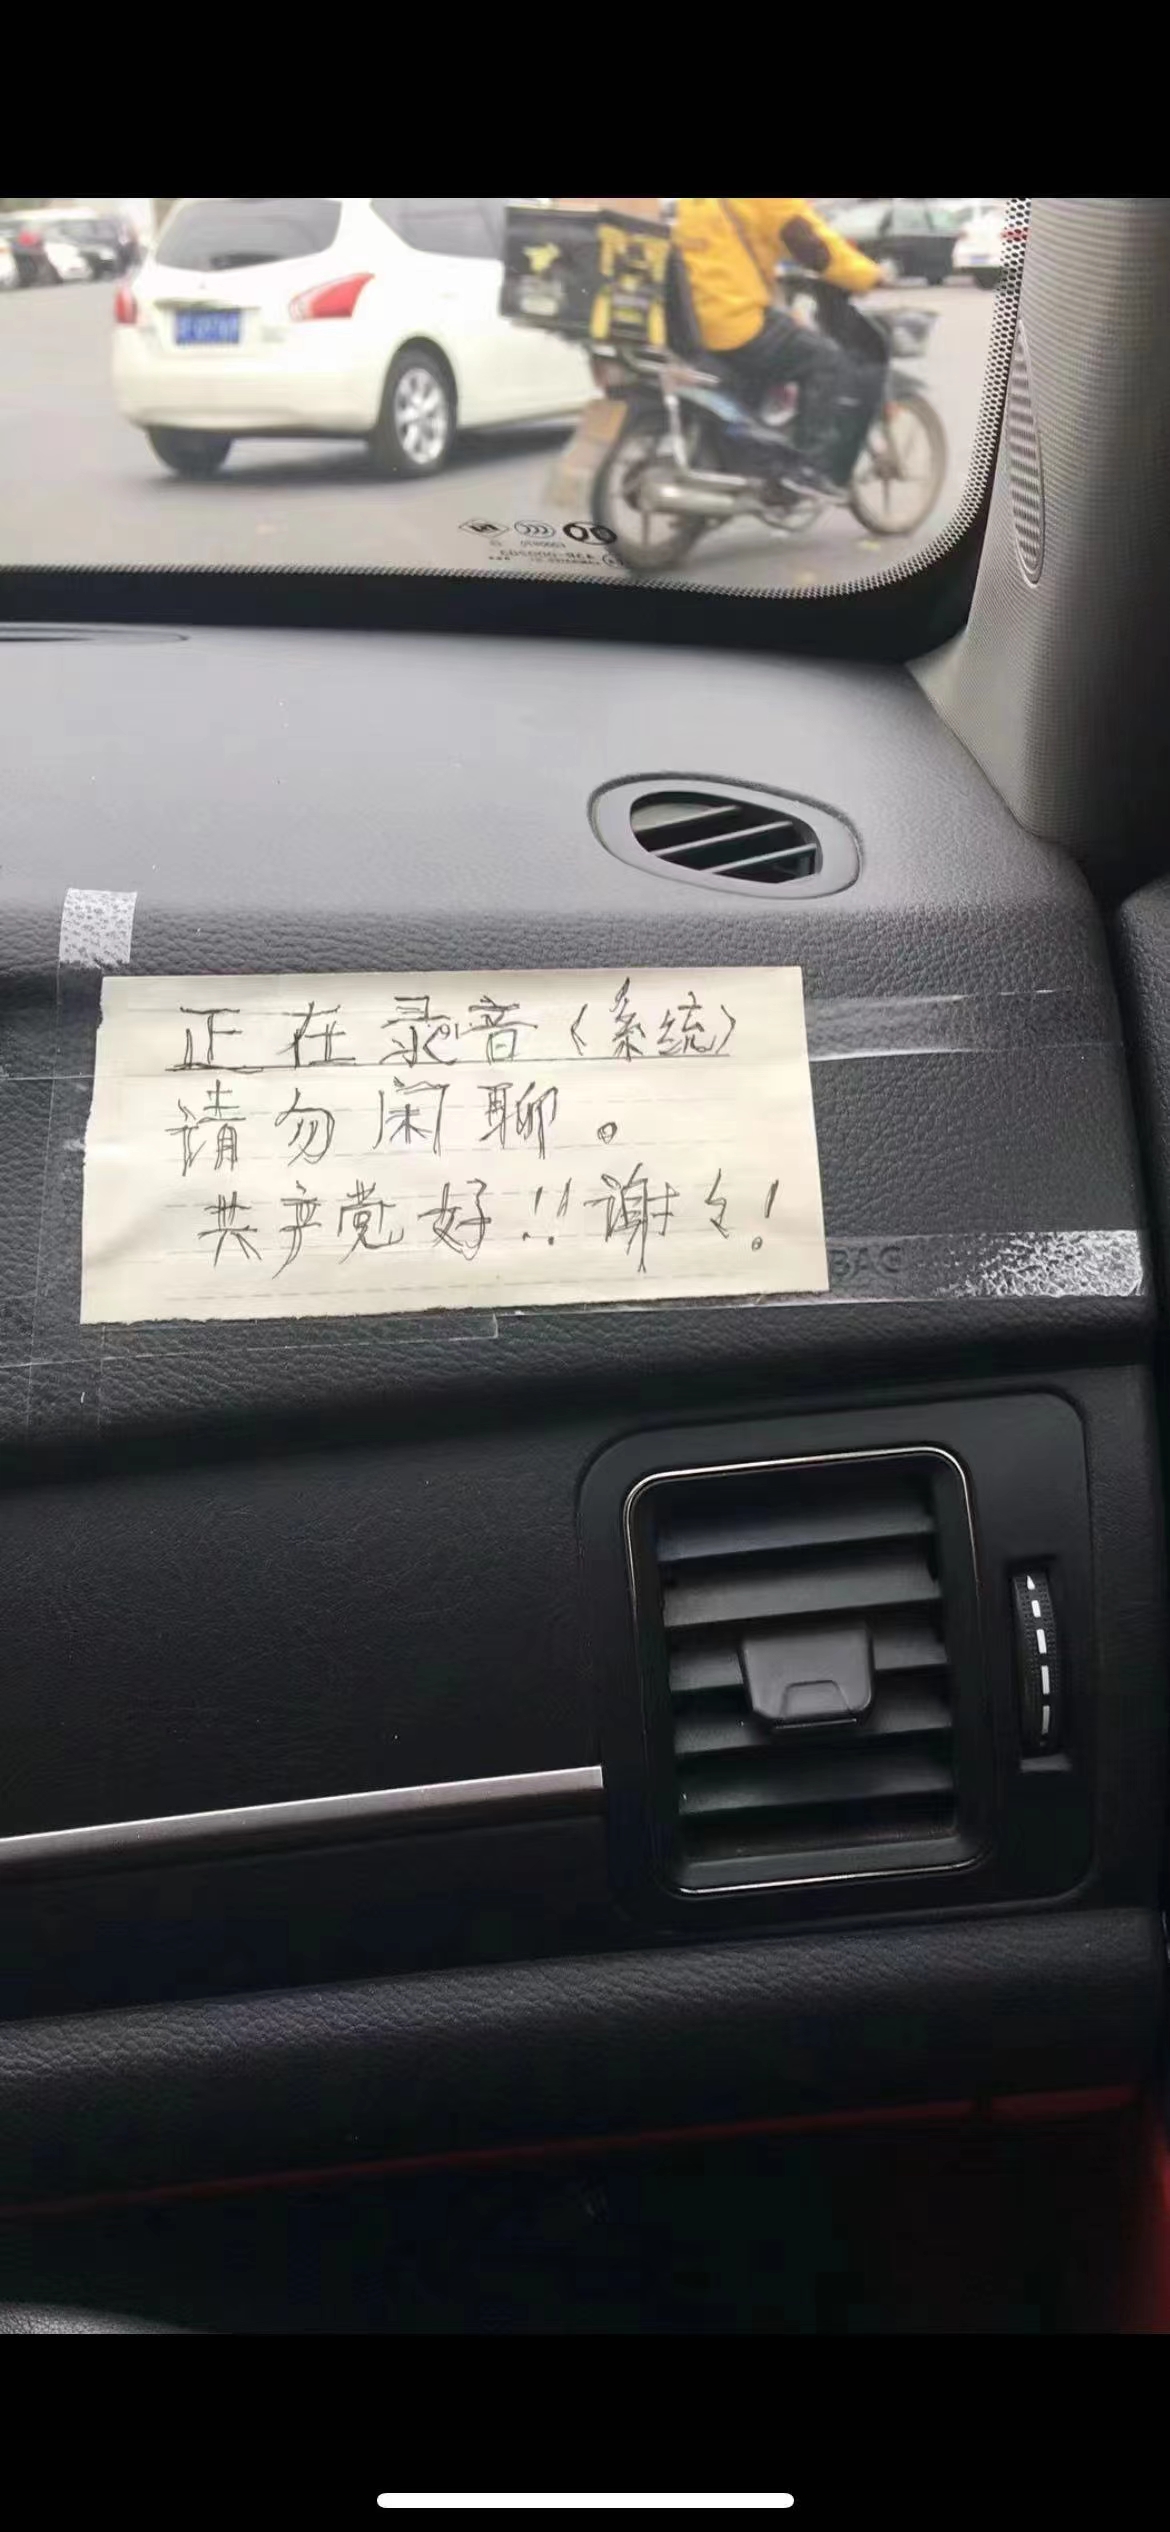 正在录音〈系统〉
请勿闲聊。
共产党好!!谢々!
BAG